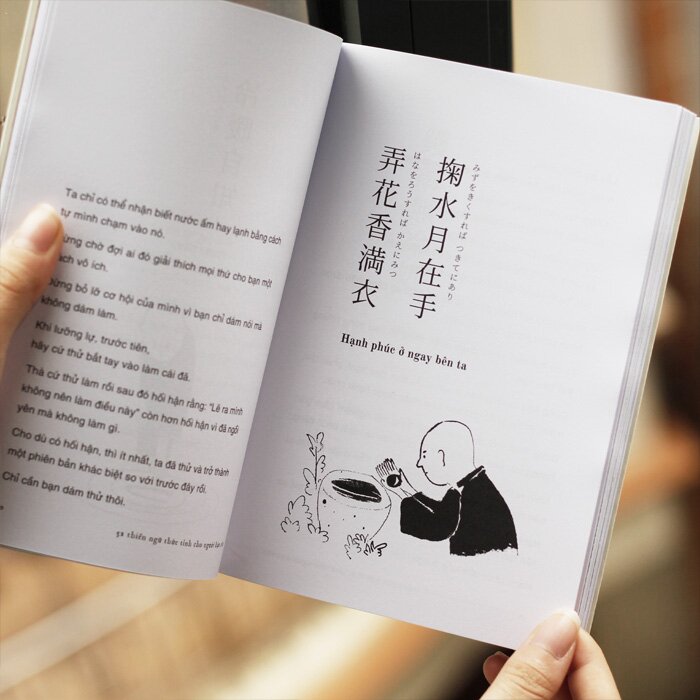 Ta chỉ có thể nhận biết nước ấm hay lạnh bằng cách
tự mình chạm vào nó.
ừng chờ đợi ai đó giải thích mọi thứ cho bạn một
ách vô ích.
ừng bỏ lỡ cơ hội của mình vì bạn chỉ dám nói mà
không dám làm.
Khi lưỡng lự, trước tiên,
hãy cứ thử bắt tay vào làm cái đã.
Thà cứ thử làm rồi sau đó hối hận rằng: “Lẽ ra mình
không nên làm điều này” còn hơn hối hận vì đã ngồi
yên mà không làm gì.
Cho dù có hối hận, thì ít nhất, ta đã thử và trở thành
một phiên bản khác biệt so với trước đây rồi.
Chỉ cần bạn dám thử thôi.
52 thiền ngữ thức tỉnh cho người
掬水月在手
みずをきくすれば つきてにあり
弄花香満衣
はなをろうすれば かえにみつ
Hạnh phúc ở ngay bên ta